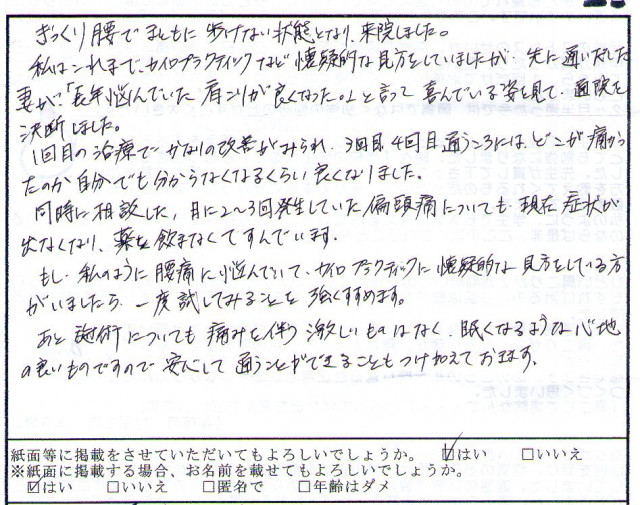 ぎっくり腰でまともに歩けない状態となり、来院しました。
私はこれまで、カイロプラクティックなど懐疑的な見方をしていましたが、先に通いだした
妻が、「長年悩んでいた肩こりが良くなった。」と言って喜んでいる姿を見て、通院を
決断しました。
1回目の治療でかなりの改善がみられ、3回目、4回目通うころには、どこが痛かっ
たのか自分でも分からなくなるくらい良くなりました。
同時に相談した、月に2〜3回発生していた偏頭痛についても、現在症状が
出なくなり、薬を飲まなくてすんでいます。
もし、私のように腰痛に悩んでいて、カイロプラクティックに懐疑的な見方をしている方
がいましたら、一度試してみることを強くすすめます。
あと施術についても痛みを伴う激しいものはなく、眠くなるような心地
の良いものですので安心して通うことができることもつけ加えておきます。
紙面等に掲載をさせていただいてもよろしいでしょうか。 ☑はい □いいえ
※紙面に掲載する場合、お名前を載せてもよろしいでしょうか。
☑はい □いいえ □匿名で □年齢はダメ